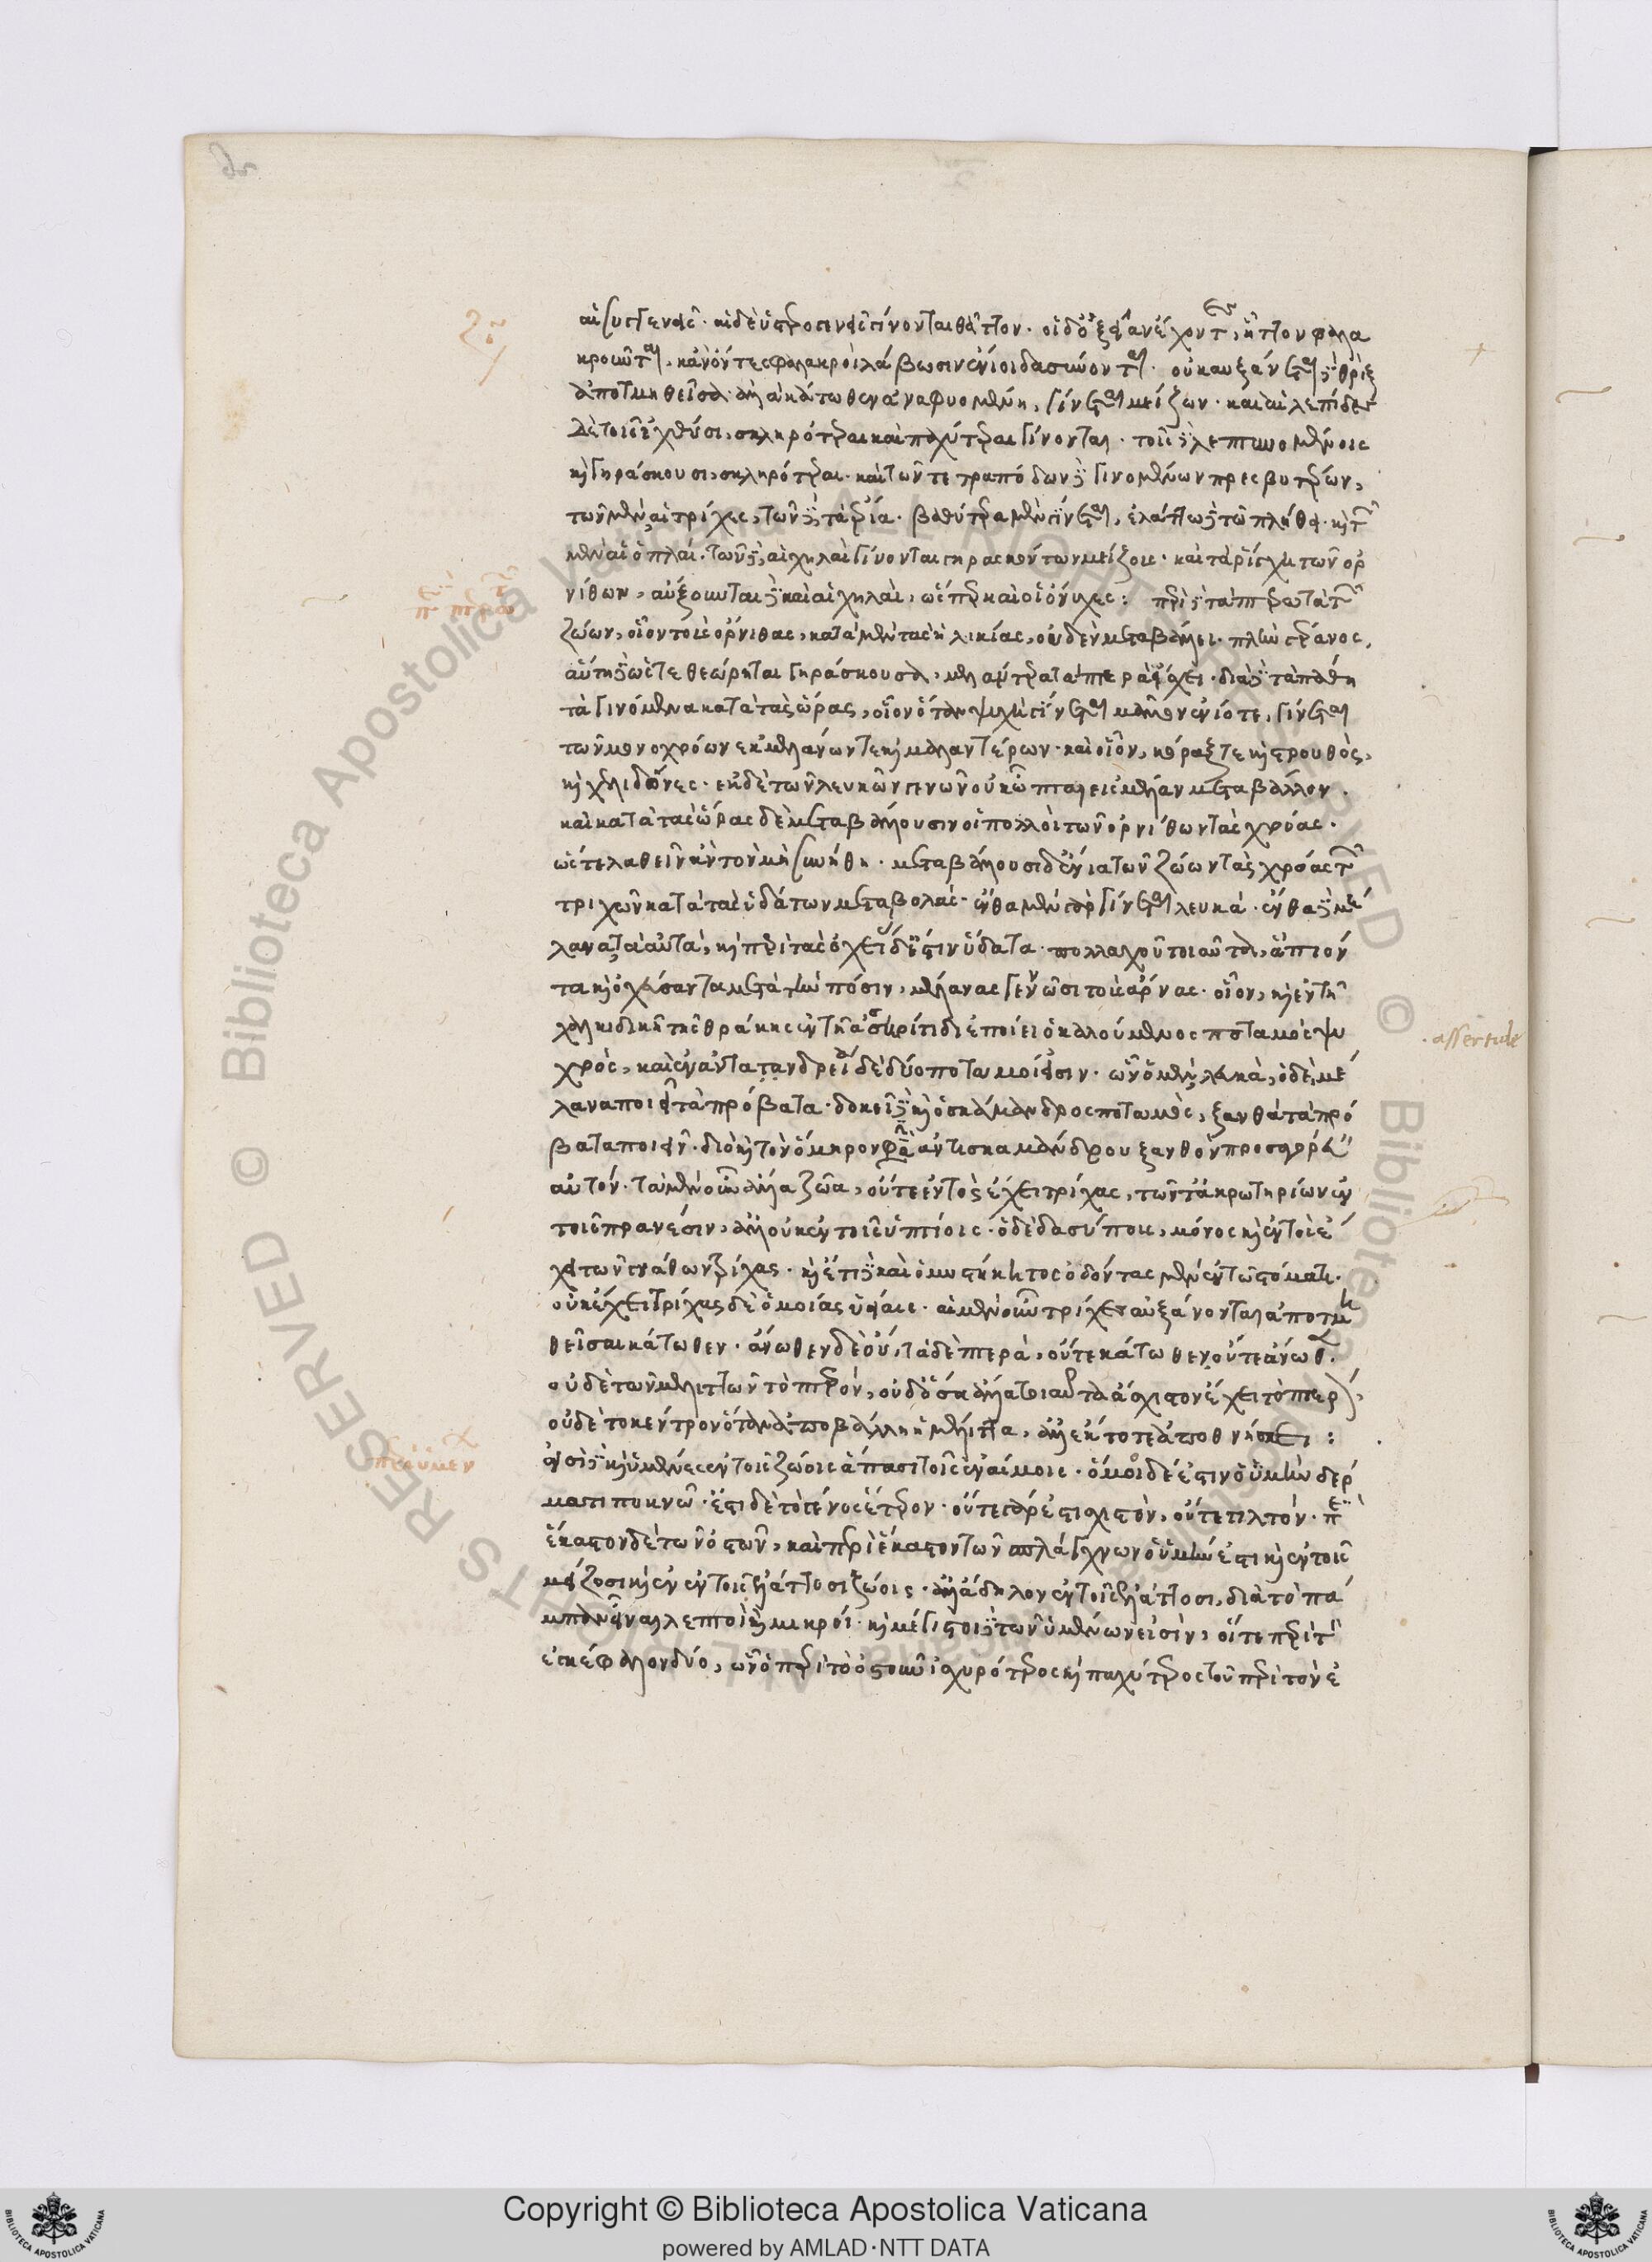 αἱ συγγενεῖς· αἱ δὲ ὑστερογενεῖς γίνονται θᾶττον. οἱ δ' ἰξίαν ἔχοντες, ἧττον φαλα
κροῦνται, κἂν ὄντες φαλακροὶ λάβωσιν ἔνιοι δασύνονται. οὐκ αὐξάνεται δὲ θρὶξ
ἀποτμηθεῖσα· ἀλλὰ κάτωθεν ἀναφυομένη, γίνεται μείζων. καὶ αἱ λεπίδες
δὲ τοῖς ἰχθύσι, σκληρότεραι καὶ παχύτεραι γίνονται. τοῖς δὲ λεπτυνομένοις
καὶ γηράσκουσι, σκληρότεραι. καὶ τῶν τετραπόδων δὲ γινομένων πρεσβυτέρων,
τῶν μὲν αἱ τρίχες, τῶν δὲ τὰ ἔρια. βαθύτερα μὲν γίνεται, ἐλάττω δὲ τῶ πλήθει. καὶ τῶν
μὲν αἱ ὁπλαί. τῶν δὲ, αἱ χηλαὶ γίνονται γηρασκόντων μείζους. καὶ τὰ ῥύγχη τῶν ὀρ
νίθων, αὐξονται δὲ καὶ αἱ χηλαὶ, ὥσπερ καὶ οἱ ὄνυχες: περὶ δὲ τὰ πτερωτὰ τῶν
ζώων, οἷον τοὺς ὄρνιθας, κατὰ μὲν τὰς ἡλικίας, οὐδὲν μεταβάλλει. πλὴν γέρανος,
αὕτη δ' ὥστε θεωρῆται γηράσκουσα, μελάντερα τὰ πτερὰ ἴσχει. διὰ δὲ τὰ πάθη
τὰ γινόμενα κατὰ τὰς ὥρας, οἷον ὅταν ψύχη γίνεται μᾶλλον ἐνίοτε, γίνεται
τῶν μονοχρόων ἐκ μελάνων τε καὶ μελαντέρων. καὶ οἷον, κόραξ τε καὶ στρουθὸς,
καὶ χελιδόνες. ἐκ δὲ τῶν λευκῶν γενῶν οὐκ ὦπται εἰς μέλαν μεταβάλλον.
καὶ κατὰ τὰς ὥρας δὲ μεταβάλλουσιν οἱ πολλοὶ τῶν ὀρνίθων τὰς χρόας.
ὥστε λαθεῖν ἂν τὸν μὴ συνήθη. μεταβάλλουσι δ' ἔνια τῶν ζώων τὰς χρόας τῶν
τριχῶν κατὰ τὰς ὑδάτων μεταβολάς. ἔνθα μὲν γὰρ γίνεται λευκά. ἔνθα δὲ μέ
λανα ταὐτά, καὶ περὶ τὰς ὀχείας δέ ἐστιν ὕδατα πολλαχοῦ τοιαῦτα, ἃ πιόν
τα καὶ ὀχεύσαντα μετὰ τὴν πόσιν, μέλανας γεννῶσι τοὺς ἄρνας. οἷον, καὶ ἐν τῆ
χαλκιδικῆ τῆς θράκης ἐν τῆ ἀσυρίτιδι ἐποίει ὁ καλούμενος ποταμὸς ψυ
χρὸς, καὶ ἐν ἀντατανδρεία δὲ δύο ποταμοί εἰσιν. ὧν ὁ μὲν λευκὰ, ὁ δὲ μέ
λανα ποιεῖ τὰ πρόβατα. δοκεῖ δὲ καὶ ὁ σκάμανδρος ποταμὸς, ξανθὰ τὰ πρό
βατα ποιεῖν. διὸ καὶ τὸν ὅμηρον φασὶν ἀντὶ σκαμάνδρου ξανθὸν προσαγορεύειν
αὐτόν. τὰ μὲν οὖν ἄλλα ζῶα, οὔτε ἐντὸς ἔχει τρίχας, τῶν τ' ἀκρωτηρίων ἐν
τοῖς πρανέσιν, ἀλλ' οὐκ ἐν τοῖς ὑπτίοις. ὁ δὲ δασύπους, μόνος καὶ ἐντὸς ἔ
χει τῶν γνάθων τρίχας. καὶ ἔτι δὲ καὶ ὁ μυστίκητος ὀδόντας μὲν ἐν τῶ στόματι
οὐκ ἔχει τρίχας δὲ ὁμοίας ὑείαις. αἱ μὲν οὖν τρίχες αὐξάνονται ἀποτμη
θεῖσαι κάτωθεν. ἄνωθεν δὲ οὔ, τὰ δὲ πτερὰ, οὔτε κάτωθεν οὔτε ἄνωθεν.
οὐδὲ τῶν μελιττῶν τὸ πτερόν, οὐδ' ὅσα ἄλλα τοιαῦτα ἄσχιστον ἔχει τὸ πτερόν,
οὐδὲ τὸ κέντρον ὅταν ἀποβάλλη ἡ μέλιττα, ἀλλ' ἔκτοτε ἀποθνήσκει:
εἰσὶ δὲ καὶ ὑμένες ἐν τοῖς ζώοις ἅπασι τοῖς ἐναίμοις. ὅμοιος δέ ἐστιν ὁ ὑμὴν δέρ
ματι πυκνῶ. ἔστι δὲ τὸ γένος ἕτερον. οὔτε γάρ ἐστι σχιστὸν, οὔτε τατόν. περὶ
ἕκαστον δὲ τῶν ὀστῶν, καὶ περὶ ἕκαστον τῶν σπλάγχνων ὁ ὑμήν ἐστι καὶ ἐν τοῖς
μείζοσι καὶ ἐν τοῖς ἐλάττοσι ζώοις. ἀλλ' ἄδηλον ἐν τοῖς ἐλάττοσι, διὰ τὸ πά
μπαν εἶναι λεπτοὶ καὶ μικροί. καὶ μέγιστοι δὲ τῶν ὑμένων εἰσὶν, οἵ τε περὶ τὸν
ἐγκέφαλον δύο, ὧν ὁ περὶ τὸ ὀστοῦν ἰσχυρότερος καὶ παχύτερος τοῦ περὶ τὸν ἐ
Copyright © Biblioteca Apostolica Vaticana
powered by AMLAD·NTT DATA